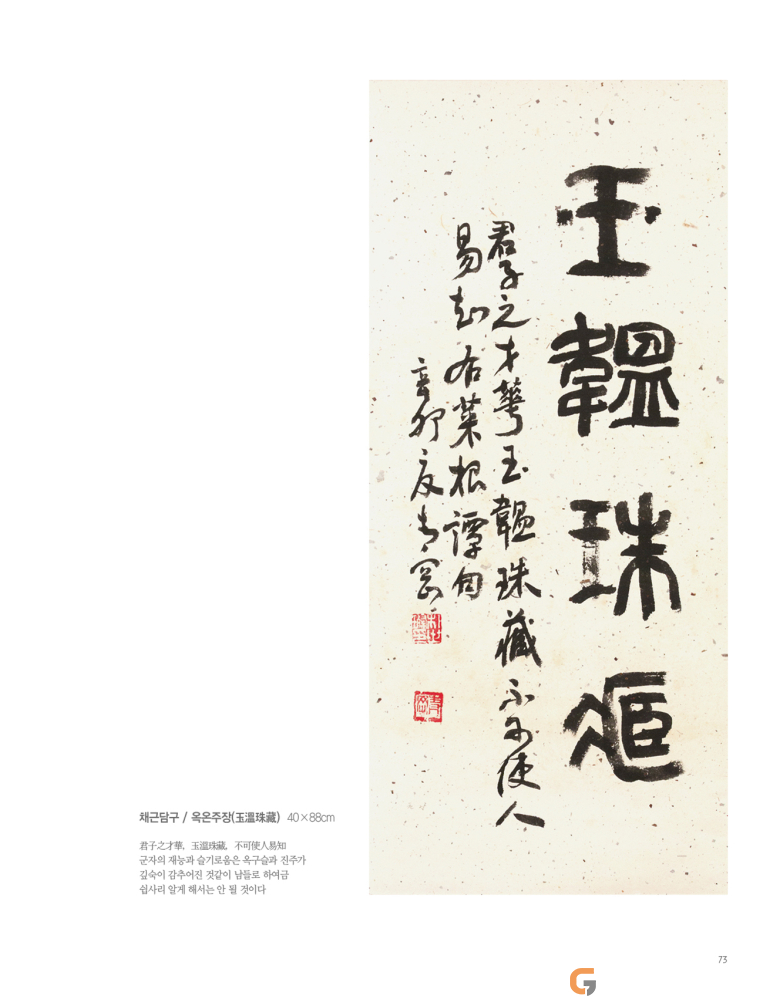 玉韞珠藏
君子之才華玉韞珠藏不可使人
易知右菜根譚句
辛卯夏青谷
채근담구 / 옥온주장(玉溫珠藏) 40×88cm
君子之才華, 玉溫珠藏, 不可使人易知
군자의 재능과 슬기로움은 옥구슬과 진주가
깊숙이 감추어진 것같이 남들로 하여금
쉽사리 알게 해서는 안 될 것이다
73